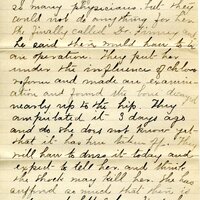 so many physicians. but they
could not do anything for her
He finally called Dr. Finney and
he said there would have to be
an operation. They put her
under the influence of chloro
reform and made an examin
ation and found the bone dead
nearly up to the hip. They
amputated it 3 days ago
and she does not know yet
that it has been taken off. They
will have to dress it today and
expect to tell her, and think
the shock may kill her. She has
suffered so much that there is